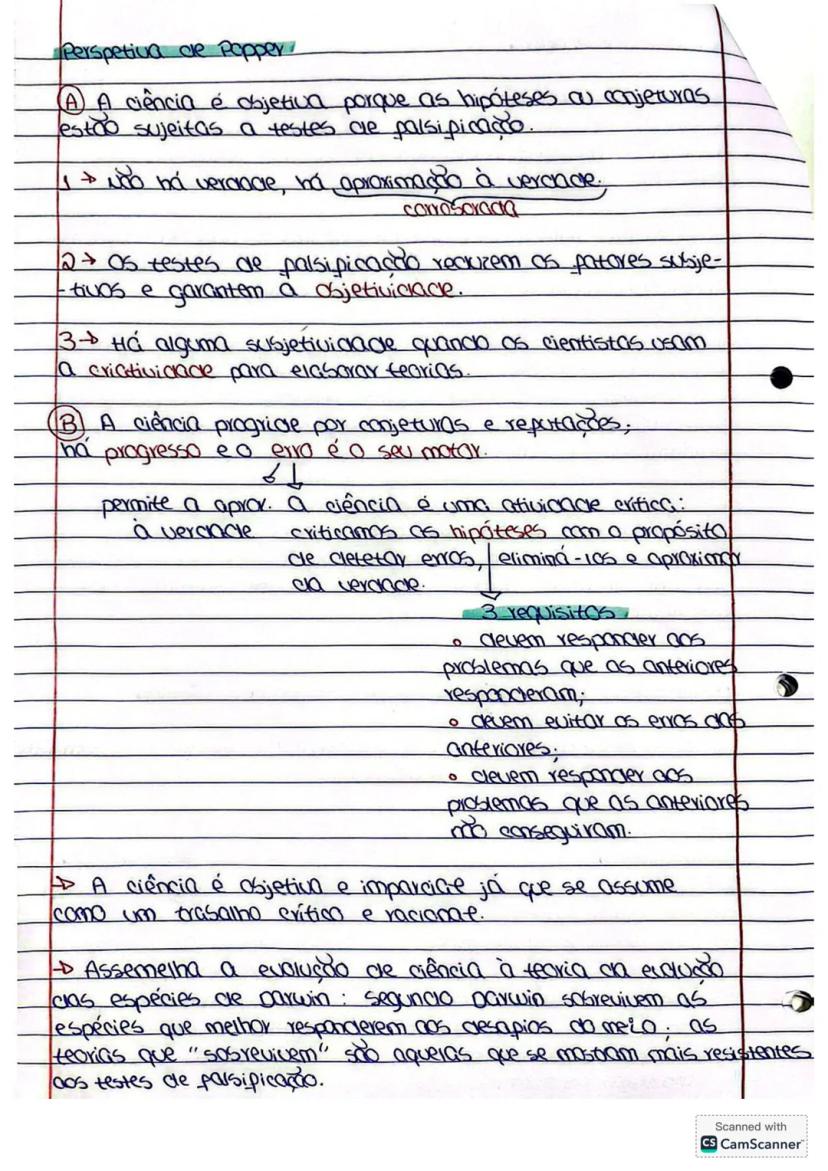 Perspetiva de Popper
Ⓐ A ciência é objetiva porque as hipóteses ou conjeturas
estão sujeitas a testes de falsificação.
1 → Não há verdade, há aproximação à verdade.
corroborada
2 → Os testes de falsificação reduzem os fatores subje-
-tivos e garantem a objetividade.
3 → Há alguma subjetividade quando os cientistas usam
a criatividade para elaborar teorias.
Ⓑ A ciência progride por conjeturas e refutações;
há progresso e o erro é o seu motor.
permite a aprox. A ciência é uma atividade crítica:
à verdade criticamos as hipóteses com o propósito
de detetar erros, eliminá-los e aproximar
da verdade.
3 requisitos
• devem responder aos
problemas que as anteriores
responderam;
• devem evitar os erros das
anteriores;
• devem responder aos
problemas que as anteriores
não conseguiram.
→ A ciência é objetiva e imparcial já que se assume
como um trabalho crítico e racional.
→ Assemelha a evolução de ciência à teoria da evolução
das espécies de Darwin: segundo Darwin sobrevivem as
espécies que melhor responderem aos desafios do meio; as
teorias que "sobrevivem" são aquelas que se mostram mais resistentes
aos testes de falsificação.
Scanned with
CS CamScanner